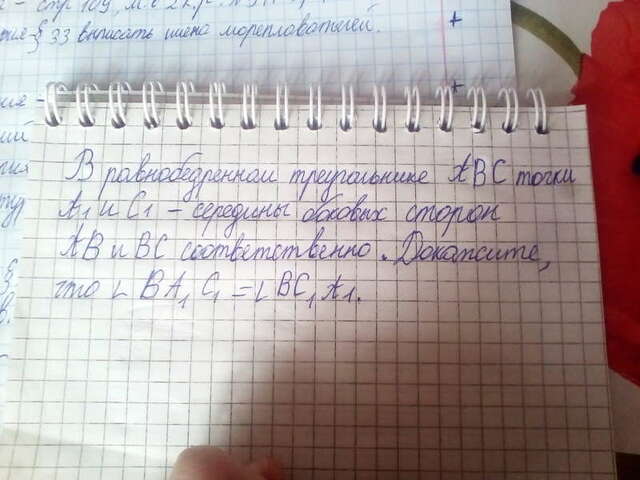 стр 109,
33 выписать имена мореплавателей.
В равнобедренном треугольнике ABC точки
A1 и C1 - середины боковых сторон
AB и BC соответственно. Докажите,
что ∟BA1C1=∟BC1A1.